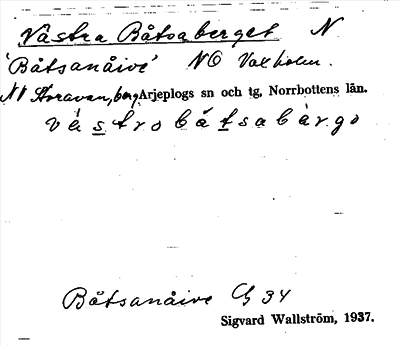 Västra Båtsaberget N
'Båtsanåive' NO Vaxholm.
NV Storavan, berg Arjeplogs sn och tg, Norrbottens län.
våstrobåtsabärgo
Båtsanåive G 34
Sigvard Wallström, 1937.